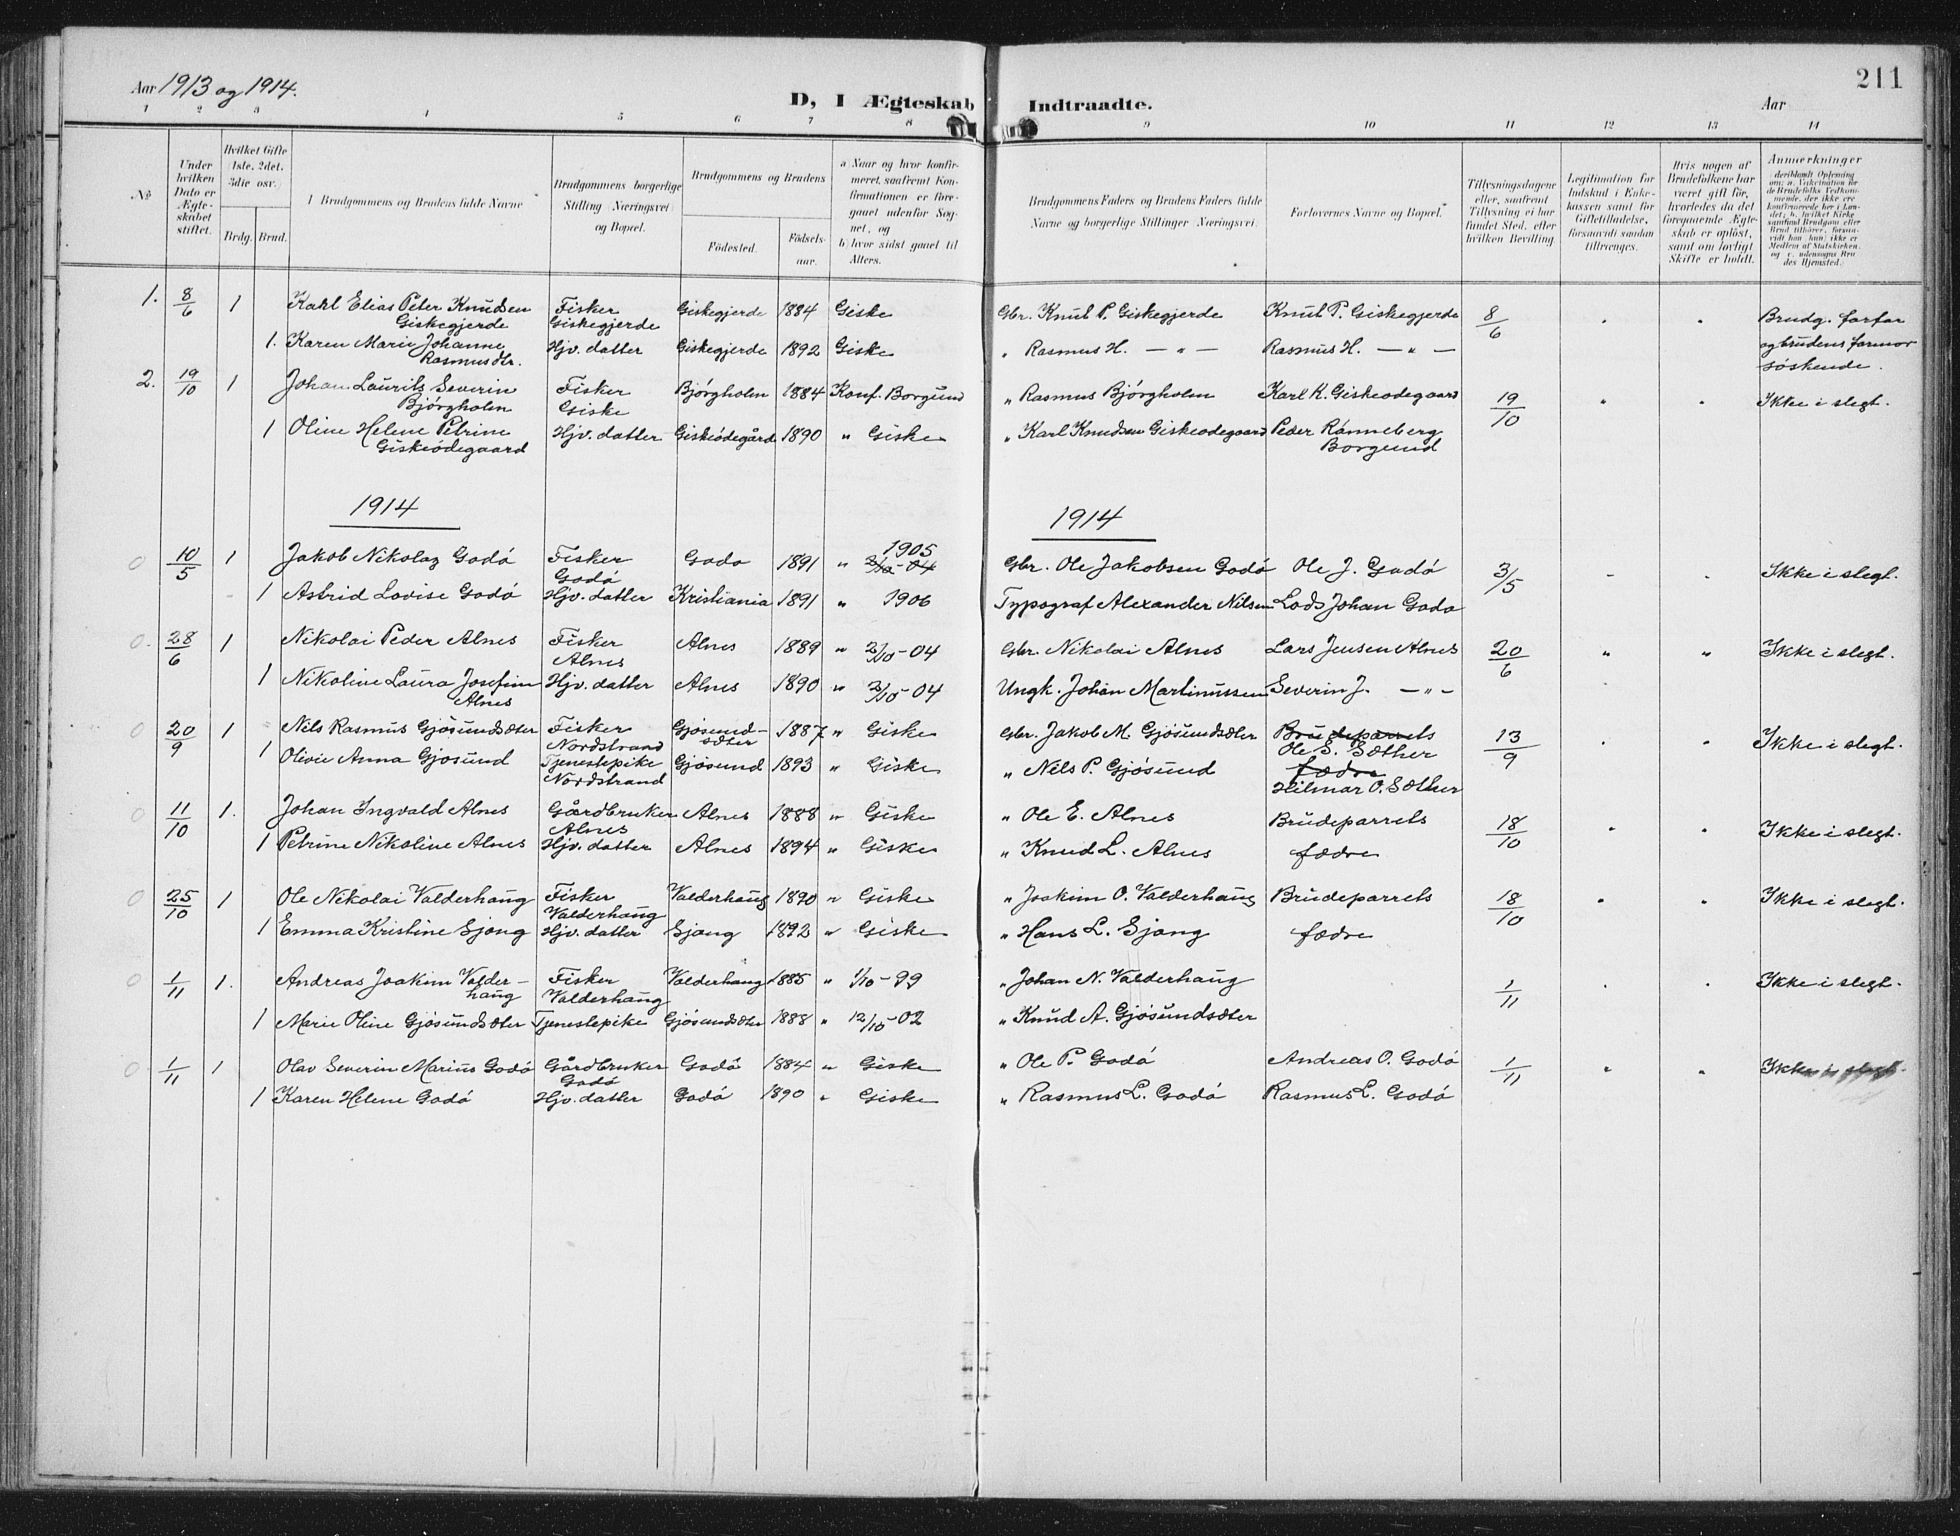 Aar 1913 og 1914. D, I Ægteskab Indtraadte. Aar 211
1 2 3 4 5 6 7 8 9 10 11 12 13 14
No Under hvilken Dato er Ægteskabet stiftet. Hvilket Gifte (1ste, 2det, 3die osv.) Brdg. Brud. Brudgommens og Brudens fulde Navne Brudgommens borgerlige Stilling (Næringsvei) og Bopæl. Brudgommens og Brudens Fødested. Fødselsaar. a) Naar og hvor konfirmeret, saafremt Konfirmationen er foregaaet udenfor Sognet, og b) hvor sidst gaaet til Alters. Brudgommens Faders og Brudens Faders fulde Navne og borgerlige Stillinger (Næringsvei). Forlovernes Navne og Bopæl. Tillysningsdagene eller, saafremt Tillysning ei har fundet Sted, efter hvilken Bevilling. Legitimation for Indskud i Enkekassen samt for Giftetilladelse, forsaavidt saadan tiltrænges. Hvis nogen af Brudefolkene har været gift før, hvorledes da det foregaaende Ægteskab er opløst, samt om lovligt Skifte er holdt. Anmerkninger
1. 8/6 1 Karl Elias Peter Knudsen Fisker Giskegjerde 1884 Giske Gbr. Knut P. Giskegjerde Knut P. Giskegjerde 8/6 " " Brudg. farfar
Giskegjerde Giskegjerde
1. Karen Marie Johanne Hjv. datter Giskegjerde 1892 Giske " Rasmus H. — " — Rasmus H. — " — og brudens farmor
Rasmusdtr. søskende.
2. 19/10 1 Johan Laurits Severin Fisker Bjørgholm 1884 Konf. Borgund " Rasmus Bjørgholm Karl K. Giskeødegaard 19/10 " " Ikke i slegt.
Bjørgholm Giske
1 Oline Helene Petrine Hjv. datter Giskeødegård 1890 " Giske " Karl Knudsen Giskeødegaard Peder Rønneberg
Giskeødegaard Borgund
1914 1914
1905
0 10/5 1 Jakob Nikolaz Godø Fisker Godø 1891 " 2/10-04 Gbr. Ole Jakobsen Godø Ole J. Godø 3/5 " " Ikke i slegt.
Godø
1 Astrid Lovise Godø Hjv. datter Kristiania 1891 " 1906 Typograf Alexander Nilsen Lods Johan Godø
0. 28/6 1 Nikolai Peder Alnes Fisker Alnes 1889 " 2/10-04 Gbr. Nikolai Alnes Lars Jensen Alnes 20/6 " " Ikke i slegt.
Alnes
1 Nikoline Laura Josefine Hjv. datter Alnes 1890 " 2/10-04 Ungk. Johan Martinussen Severin J. — " —
Alnes
0 20/9 1 Nils Rasmus Gjøsundsæter Fisker Gjøsund- 1887 " Giske Gbr. Jakob M. Gjøsundsæter Brudeparrets 13/9 " " Ikke i slegt.
Nordstrand sæter Ole S. Sæther
1 Olivie Anna Gjøsund Tjenestepike Gjøsund 1893 " Giske " Nils P. Gjøsund fædre
Nordstrand Hilmar O. Sæther
0 11/10 1. Johan Ingvald Alnes Gårdbruker Alnes 1888 " Giske " Ole E. Alnes Brudeparrets 18/10 " " Ikke i slegt.
Alnes
1 Petrine Nikoline Alnes Hjv. datter Alnes 1894 " Giske " Knud L. Alnes fædre
0 25/10 1 Ole Nikolai Valderhaug Fisker Valderhaug 1890 " Giske " Joakim O. Valderhaug Brudeparrets 18/10 " " Ikke i slegt.
Valderhaug
1 Emma Kristine Sjong Hjv. datter Sjong 1892 " Giske " Hans L. Sjong fædre
0 1/11 1. Andreas Joakim Valder- Fisker Valderhaug 1885 " 1/10-99 " Johan N. Valderhaug 1/11 " " Ikke i slegt.
haug Valderhaug
1 Marie Oline Gjøsundsæter Tjenestepike Gjøsundsæter 1888 " 12/10-02 " Knud A. Gjøsundsæter
0 1/11 1 Olav Severin Marius Godø Gårdbruker Godø 1884 " Giske " Ole P. Godø Andreas O. Godø 1/11 " " Ikke i slegt.
Godø
1 Karen Helene Godø Hjv. datter Godø 1890 " Giske " Rasmus L. Godø Rasmus L. Godø